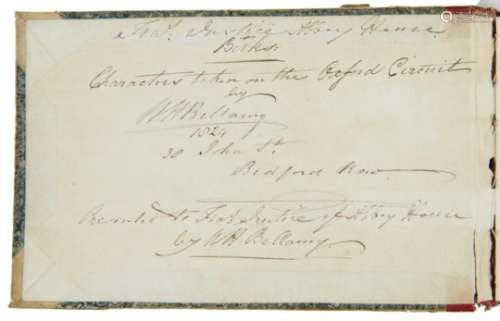 Fras. Justice Abry House
Berks
Characters taken on the Oxford Circuit
by
WH Bellamy
1824
38 John St.
Bedford Row.
to Fras. Justice of Abry House
by WH Bellamy